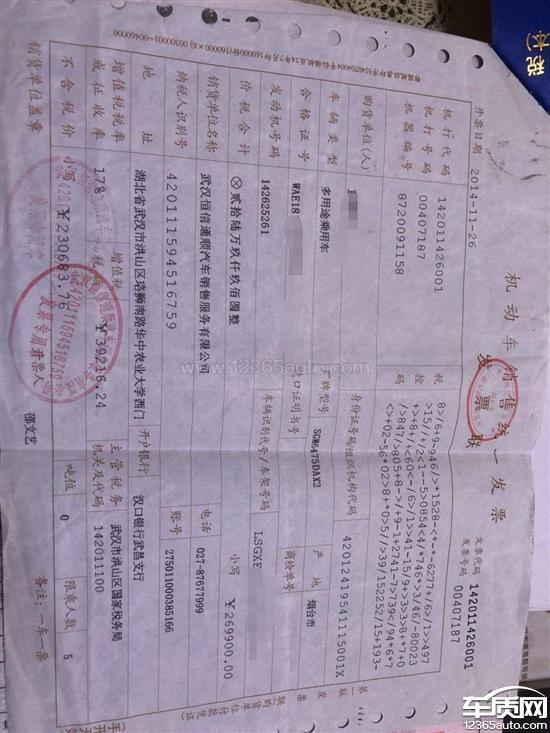 税
(本
机动车销售统一发票
发票联
发票代码 142011426001
发票号码 00407187
开票日期 2014-11-26
机打代码 142011426001
机打号码 00407187
机器编号 8720091158
税控码
购货单位(人)
身份证号码/组织机构代码 42012419541115001X
车辆类型 多用途乘用车
厂牌型号 SGM6475DAX2
产地 烟台市
合格证号 WAE18
进口证明书号
商检单号
发动机号码 142625261
车辆识别代号/车架号码 LSGXE
价税合计 ⊗贰拾陆万玖仟玖佰圆整
小写 ¥269900.00
销货单位名称 武汉恒信通顺汽车销售服务有限公司
电话 027-87677999
纳税人识别号 420111594516759
账号 275011000385166
地址 湖北省武汉市洪山区珞狮南路华中农业大学西门
开户银行 汉口银行武昌支行
增值税税率或征收率 17%
增值税税额 ¥39216.24
主管税务机关及代码 武汉市洪山区国家税务局 142011100
不含税价 小写 ¥230683.76
吨位 0
限乘人数 5
销货单位盖章
开票人 邵文艺
备注:一车一票
第一联 发票联(购货单位付款凭证)
420111594516759
发票专用章
www.12365auto.com
车质网
12365auto.com